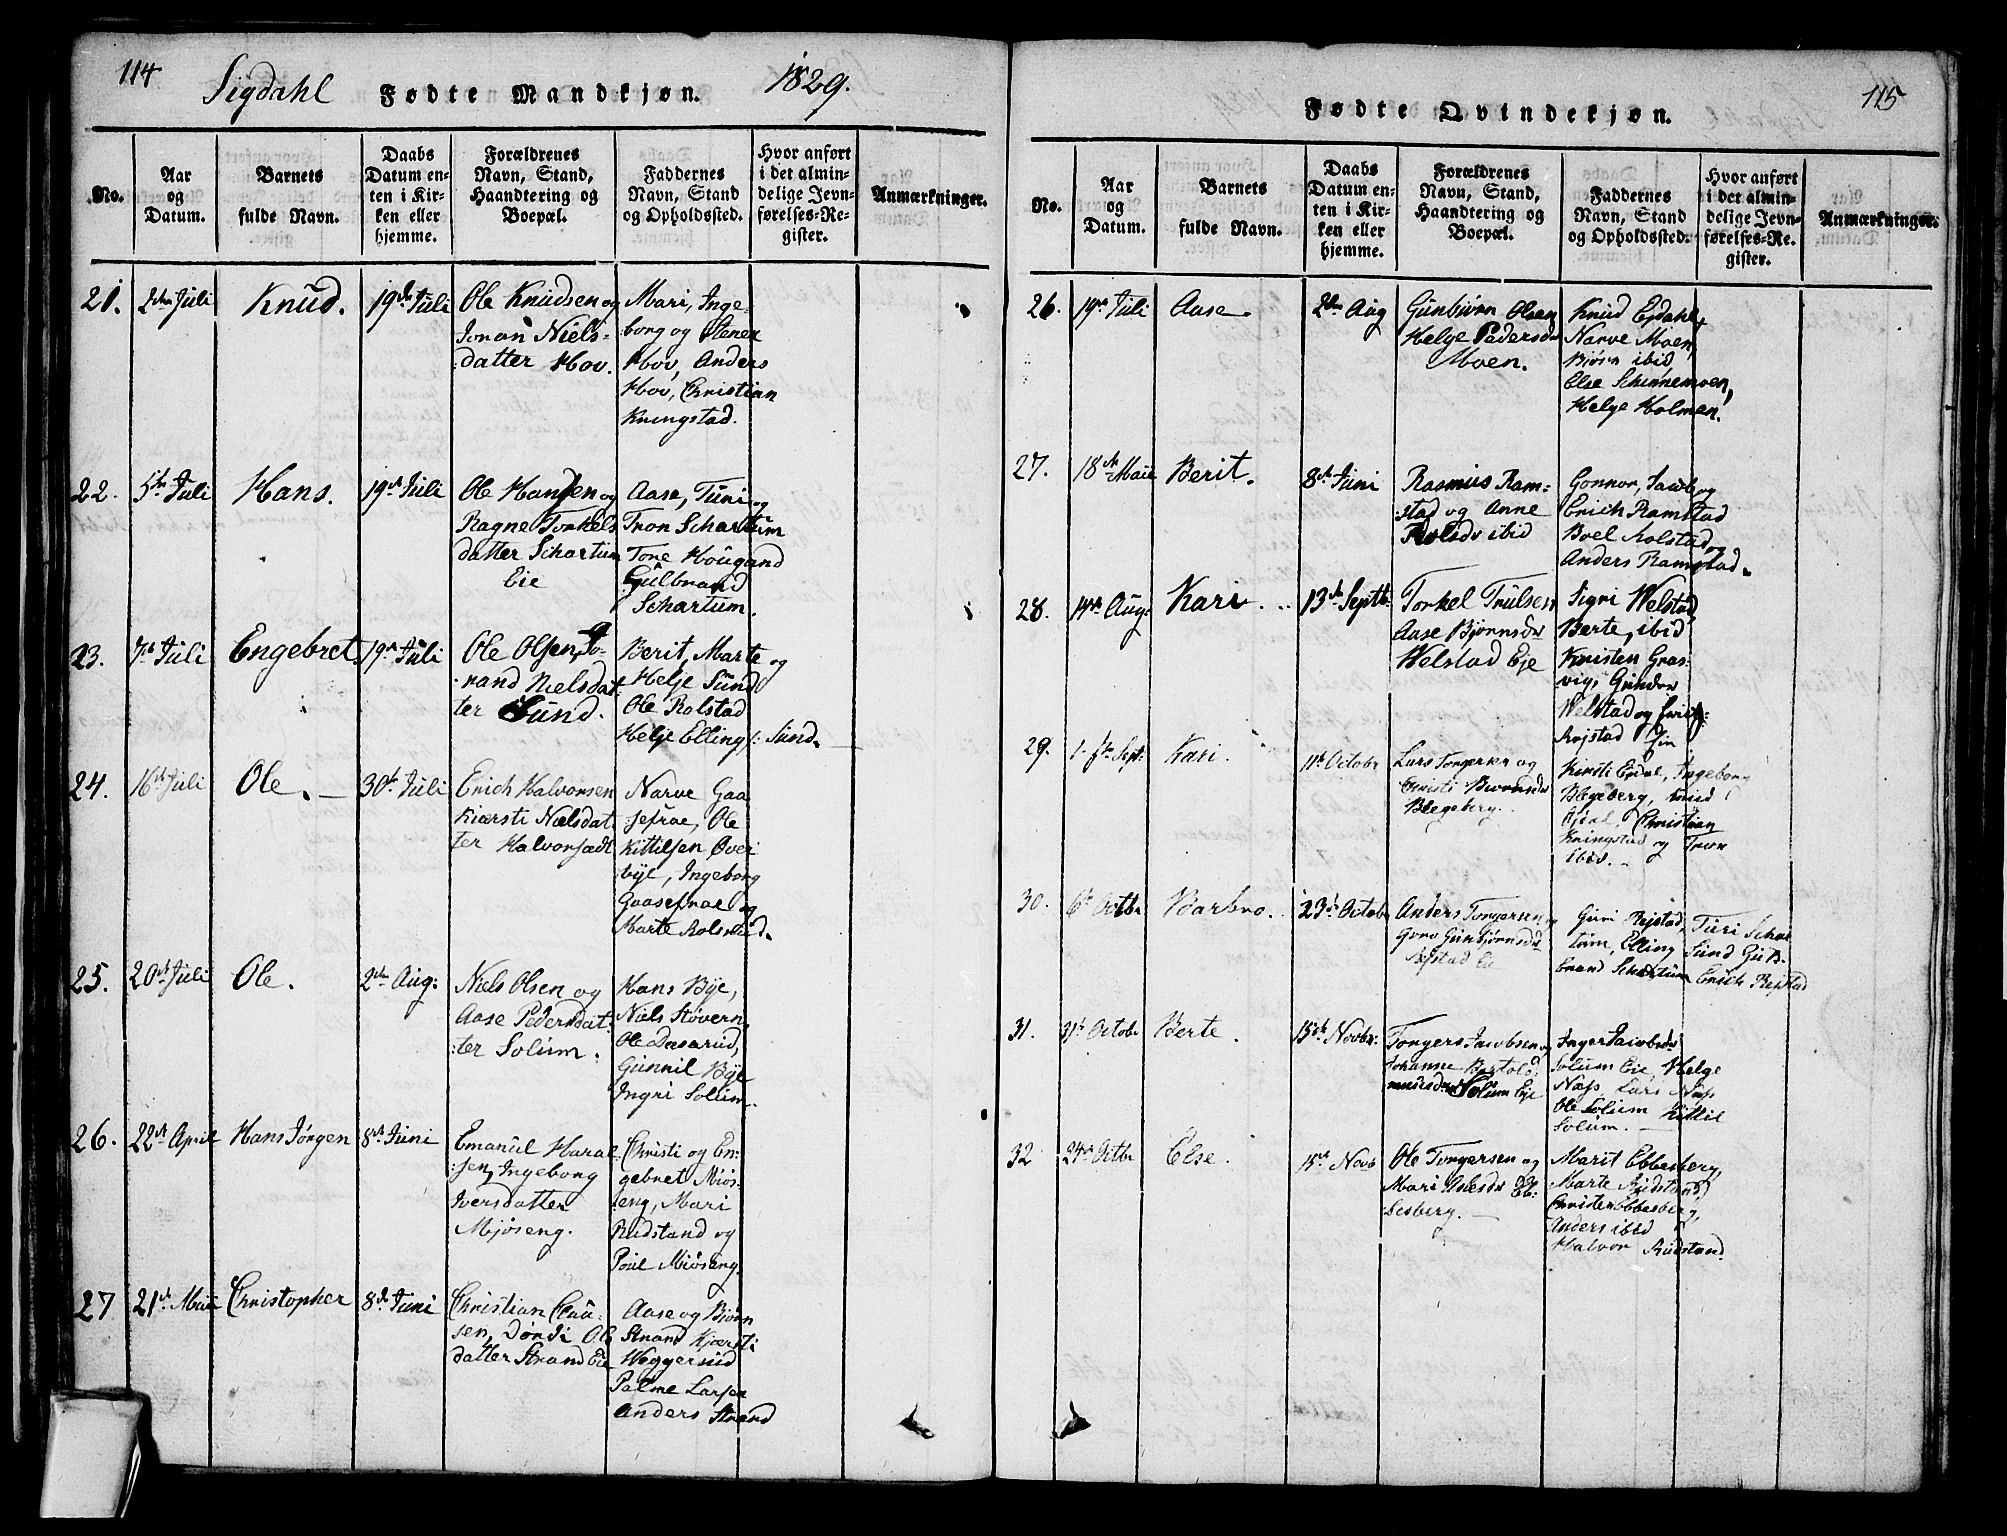 114
Sigdahl Fødte Mandkjøn. 1829.
No.
Aar
og
Datum.
Barnets
fulde Navn.
Daabs
Datum en-
ten i Kir-
ken eller
hjemme.
Forældrenes
Navn, Stand,
Haandtering og
Boepæl.
Faddernes
Navn, Stand
og Opholdssted.
Hvor anført
i det almin-
delige Jevn-
førelses-Re-
gister.
Anmærkninger.
21. 2den Juli Knud. 19de Juli
Ole Knudsen og
Joran Niels-
datter Hov.
Mari, Inge-
borg og Stener
Hov, Anders
Hov, Christian
Kringstad.
22. 5te Juli Hans. 19de Juli
Ole Hansen og
Ragne Torkels
datter Schartum
Eie
Aase, Turi og
Tron Schartum
Tone Hougand
Gulbrand
Schartum.
23. 7de Juli Engebret 19de Juli
Ole Olsen, Jo-
rand Nielsdat-
ter Sund.
Berit, Marte og
Helje Sund
Ole Rolstad
Helje Elling s: Sund.
24. 16de Juli Ole. 30te Juli
Erich Halvorsen
Kiersti Nielsdat-
ter Halvorsædt
Narve Gaa
sefrae, Ole
Kittilsen Øvre
bye, Ingeborg
Gaasefrae og
Marte Rolstad.
25. 20de Juli Ole. 2den Aug:
Niels Olsen og
Aase Pedersdat-
:ter Solum.
Hans Bye,
Niels Støvern,
Ole Daaserud,
Gunnil Bye
Ingri Solum.
26. 22de April Hans Jørgen 8de Juni
Emanuel Haral-
:sen, Ingeborg
Iversdatter
Mjøseng.
Christi og En-
gebret Miøs-
:eng, Mari
Rudstand og
Poul Miøseng.
27 21de Maii Christopher 8de Juni
Christian Clau-
sen, Dordi Ols
datter Strand Eie
Aase og Biørn
Strand Kjærsti
Weggersrud
Palme Larsen
Anders Strand
115
Fødte Qvindekjøn.
No.
Aar
og
Datum.
Barnets
fulde Navn.
Daabs
Datum en-
ten i Kir-
ken eller
hjemme.
Forældrenes
Navn, Stand,
Haandtering og
Boepæl.
Faddernes
Navn, Stand
og Opholdssted.
Hvor anført
i det almin-
delige Jevn-
førelses-Re-
gister.
Anmærkninger.
26. 19de Juli Aase 2den Aug
Gunbiørn Olsen
Helge Pedersdr
Moen.
Knud Ejdahl,
Narve Moen,
Bjørn ibid,
Else Schinnemoen,
Helge Holmen.
27. 18de Maii Berit. 8de Juni
Rasmus Ram-
:stad og Anne
Rolsdr ibid
Gonnor, Jacob og
Erich Ramstad
Boel Rolstad,
Anders Ramstad.
28. 14de Aug: Kari 13de Septb:
Torkel Trulsen
Aase Bjørnsdr
Welstad Eje
Sigri Welstad,
Berte, ibid
Kristen Gras-
vig, Gunder
Welstad og
Rejstad
29. Sept: Kari. 11te Octobr
Lars Torgersen og
Christi Biørnsdr
Blegeberg.
Kirsti Ejdal, Ingeborg
Blegeberg, Knud
Ejdal. Christian
Kringstad og Tron
ibid.
30. 6te Octbr Barbro. 23de Octobr
Anders Torgersen og
Guro Gunbjørnsdr
Rejstad Eie
Guri Rejstad, Turi Schar
tum, Elling Sund Gul-
brand Schartum Erich Rejstad
31. 31te Octobr Berte. 15de Novbr:
Torgers Jacobsen og
Johanne Bertold
Solum Eje
Inger Jacobsdr
Solum Eie, Helge
Næss Lars Næss
Ole Solum Kittil
Solum.
32 24de Octbr Else. 15de Novb
Ole Torgersen og
Mari Aslesdr Eb-
besberg.
Marit Ebbesberg,
Marte Rudstand,
Christen Ebbesberg,
Anders ibid
Halvor Rudstand